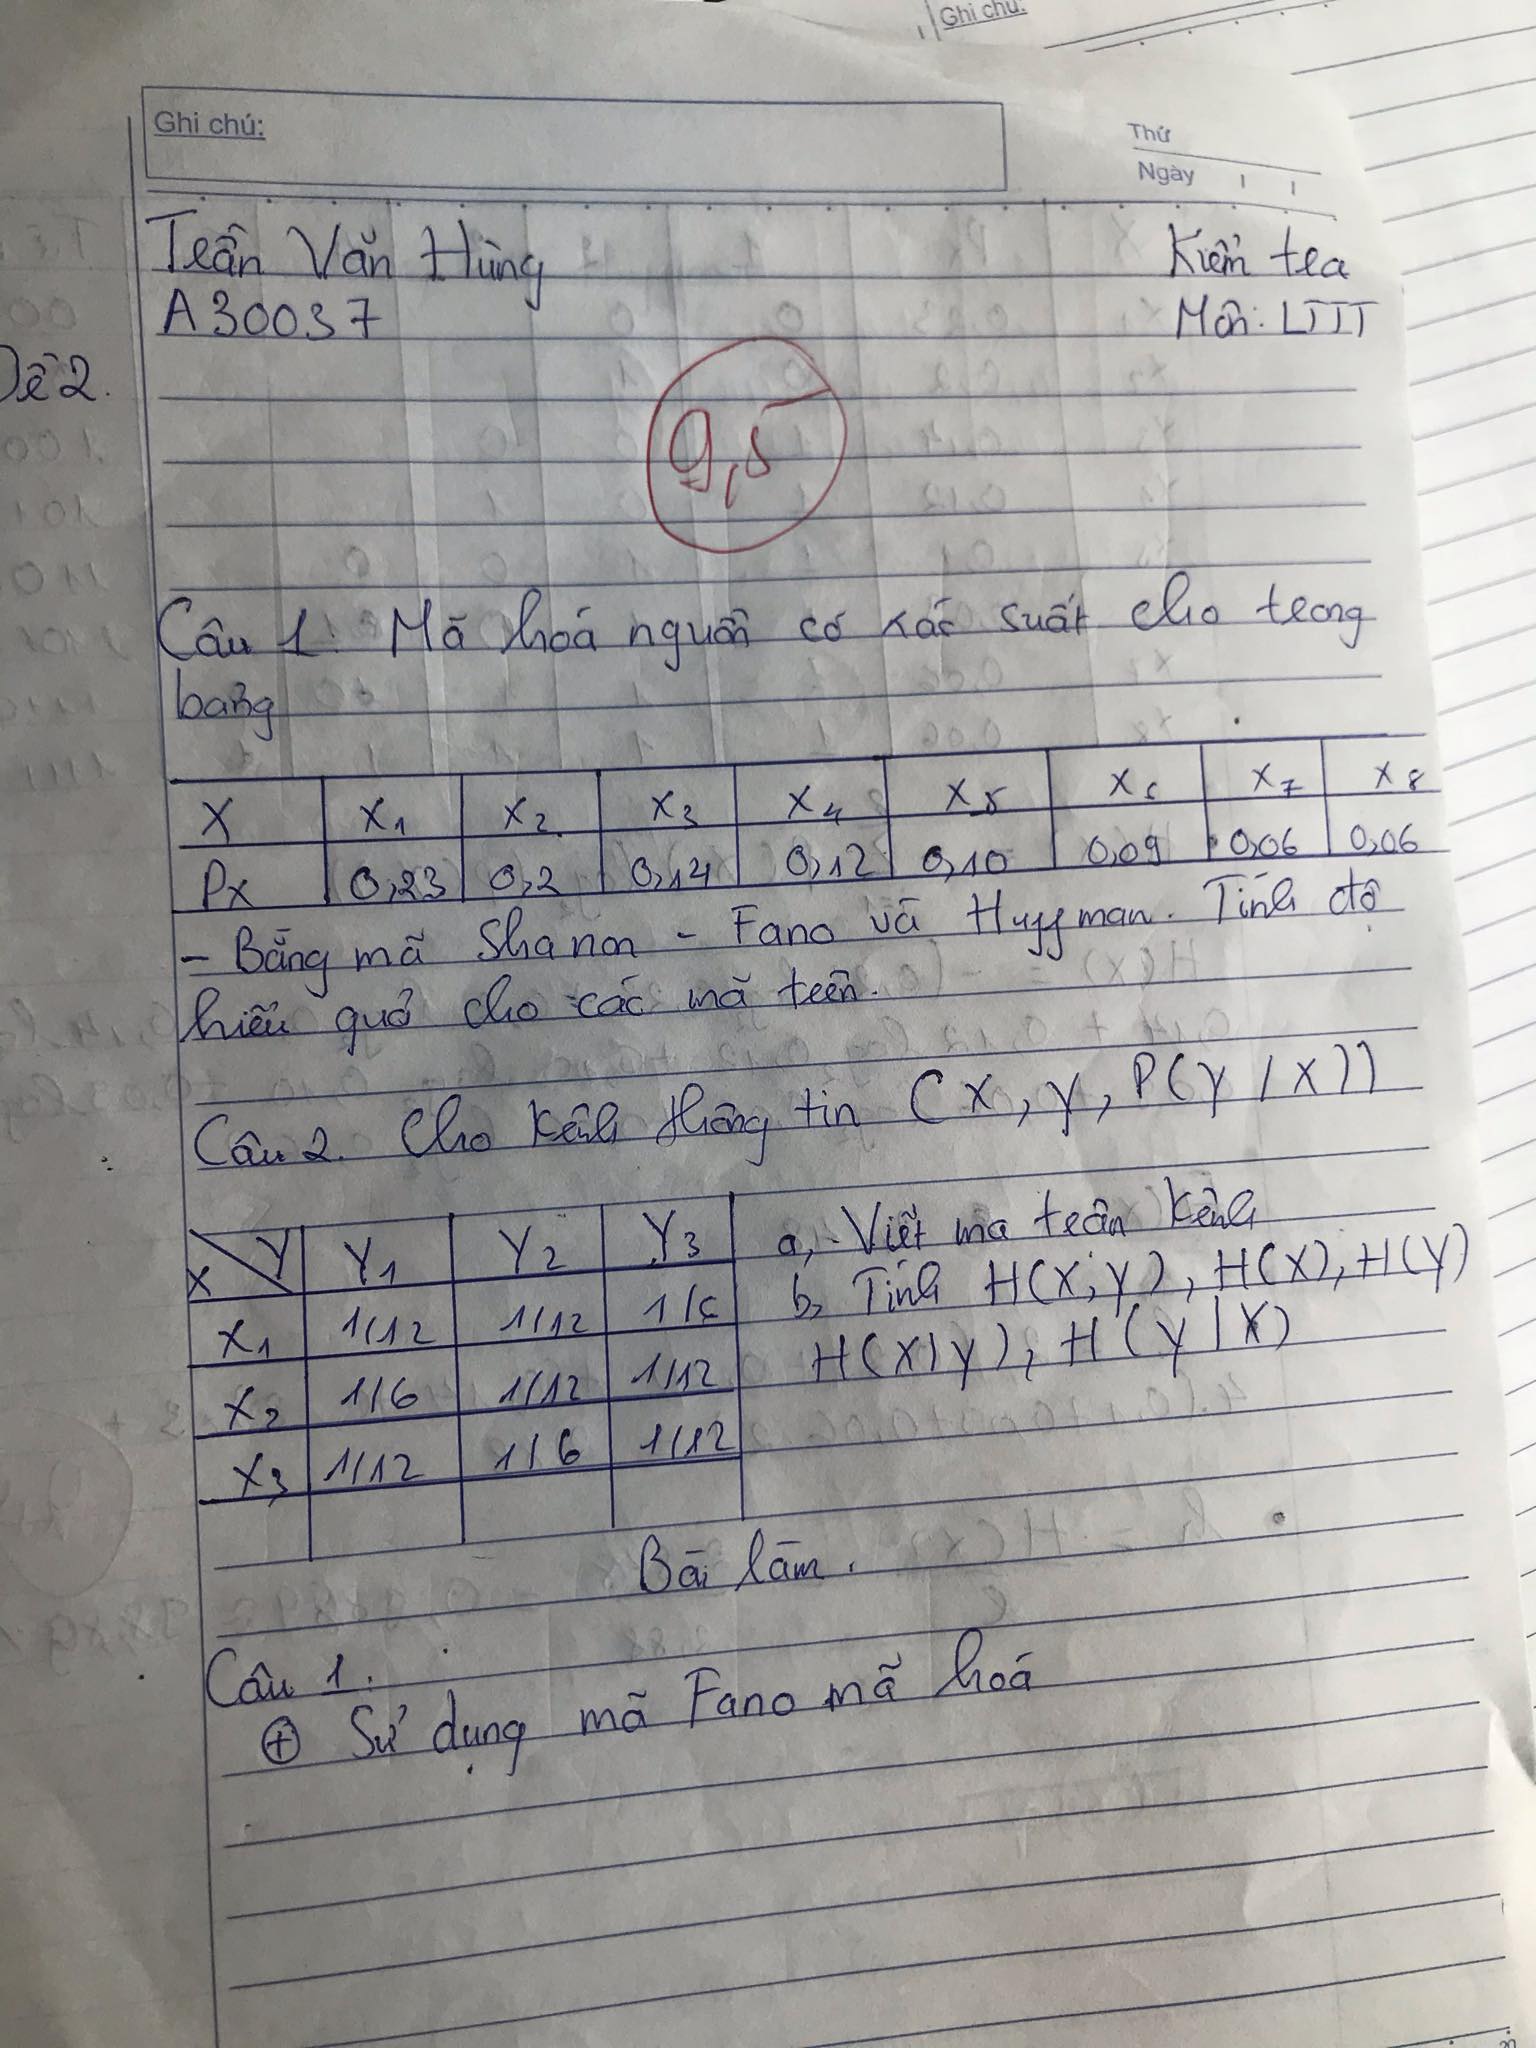 Ghi chú:
Ghi chú:
Thứ
Ngày
Trần Văn Hùng
Kiểm tra
A30037
Môn: LTTT
Đề 2.
9,5
Câu 1: Mã hoá nguồn có xác suất cho trong
bảng
X X1 X2 X3 X4 X5 X6 X7 X8
Px 0,23 0,2 0,14 0,12 0,10 0,09 0,06 0,06
- Bằng mã Shanon - Fano và Huffman. Tính độ
hiệu quả cho các mã trên.
Câu 2. Cho kênh thông tin (X, Y, P(Y/X))
X Y Y1 Y2 Y3
X1 1/12 1/12 1/6
X2 1/6 1/12 1/12
X3 1/12 1/6 1/12
a, - Viết ma trân kênh
b, Tính H(X,Y), H(X), H(Y)
H(X/Y), H(Y/X)
Bài làm.
Câu 1.
+ Sử dụng mã Fano mã hoá